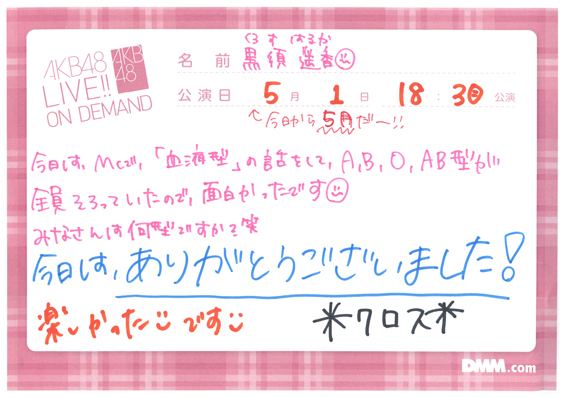 AKB48
LIVE!!
ON DEMAND
AKB
48
くろす はるか
名前 黒須 遥香
公演日 5月 1日 18:30 公演
↑今日から5月だー!!
今日は、MCで、「血液型」の話をして、A,B,O,AB型が
全員そろっていたので、面白かったです
みなさんは何型ですか?笑
今日は、ありがとうございました!
楽しかったです
*クロス*
DMM.com